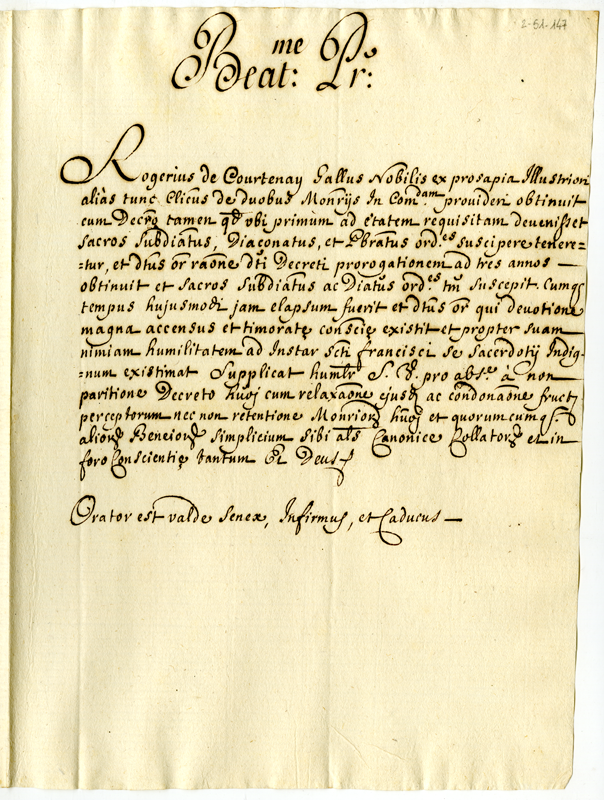 2-51-147
Beat:me Pr:
Rogerius de Courtenay Gallus Nobilis ex prosapia Illustriori
aliàs tunc Clicus de duobus Monrijs In Comdam provideri obtinuit
cum Decrō tamen qd ubi primùm ad ętatem requisitam devenisset
sacros Subdiātus, Diaconatus, et Pbrātus ord.es suscipere tenere=
=tur, et dtus or rãone dti Decreti prorogationem ad tres annos —
obtinuit et sacros Subdiātus ac Diātus ord.es tm̄ suscepit. Cumq;
tempus hujusmodi jam elapsum fuerit et dtus or qui devotione
magna accensus et timoratę conscię existit et propter suam
nimiam humilitatem ad Instar Scti francisci se Sacerdotij Indig-
=num existimat Supplicat humlr S. V. pro abs.e à non
paritione Decreto huoj cum relaxãone ejusd ac condonãone fruct
perceptorum nec non retentione Monrior huoj et quorumcumq;
alior Beneior simplicium sibi als Canonicè Collator et in
foro Conscientię tantum Et Deus
Orator est valde senex, Infirmus, et Caducus —